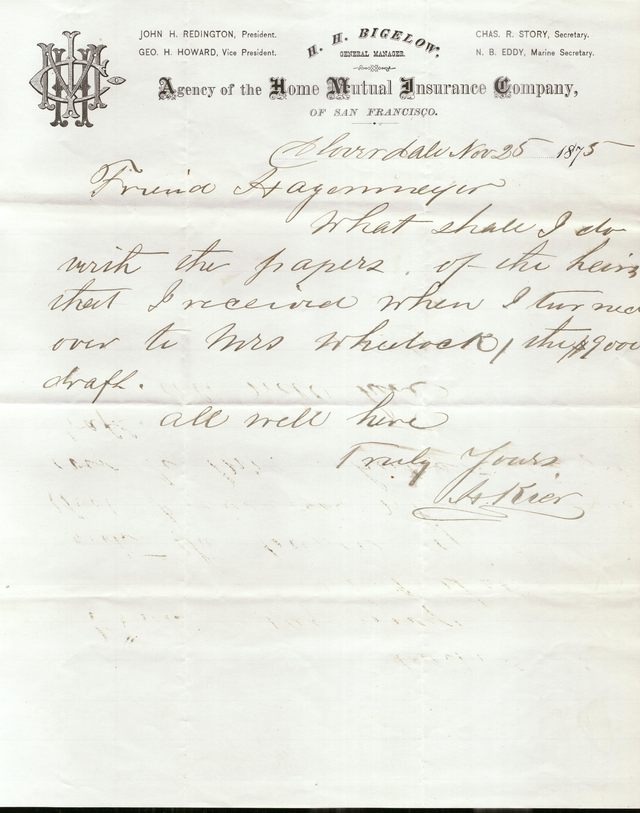 JOHN H. REDINGTON, President.
GEO. H. HOWARD, Vice President.
H. H. BIGELOW,
GENERAL MANAGER.
CHAS. R. STORY, Secretary.
N. B. EDDY, Marine Secretary.
Agency of the Home Mutual Insurance Company,
OF SAN FRANCISCO.
Cloverdale Nov 25 1875
Friend Hagenmeyer
What shall I do
with the papers. of the heirs
that I received when I turned
over to Mrs Wheelock, the $900
draft.
all well here
Truly Yours
A. Kier